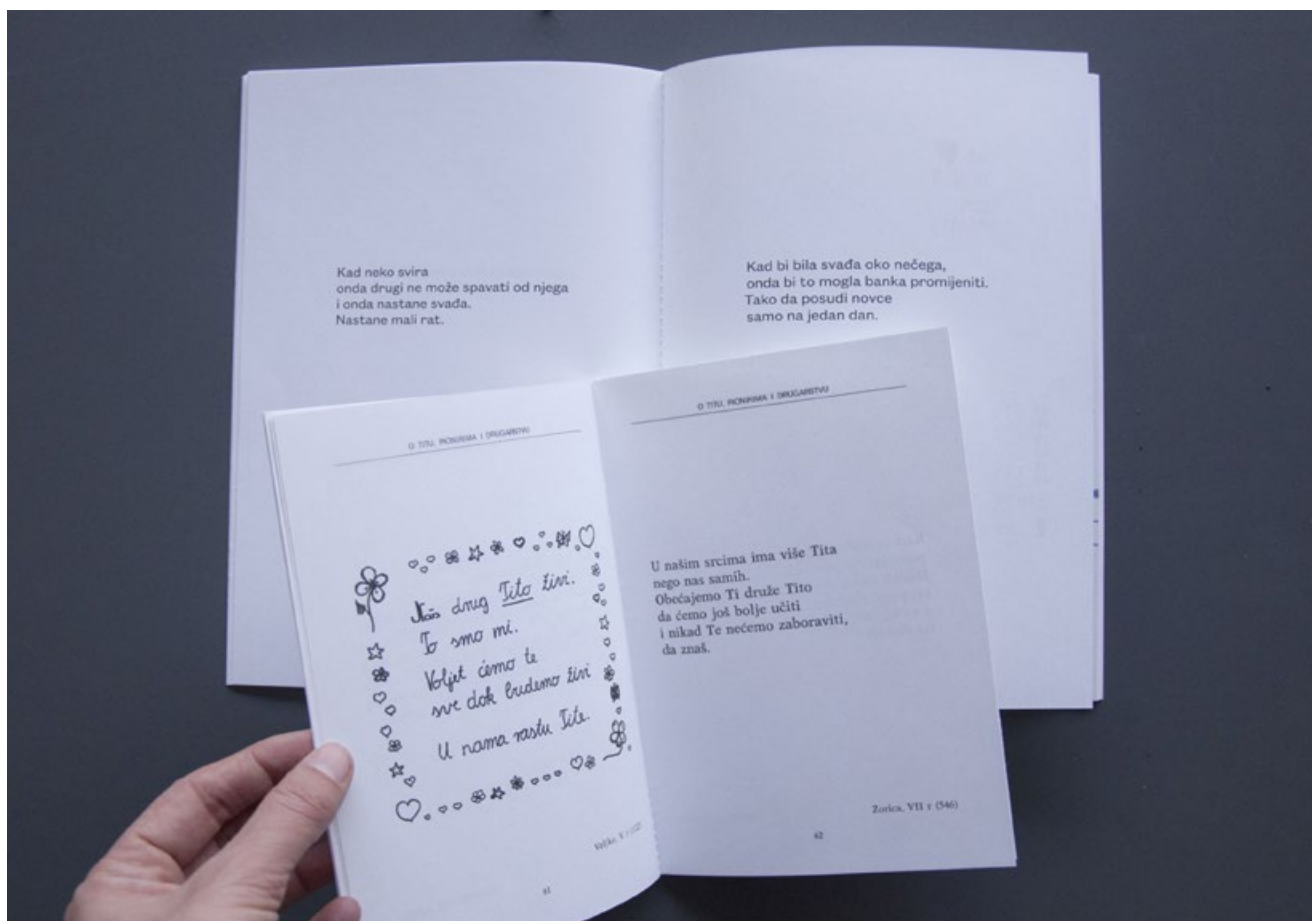 Kad neko svira
onda drugi ne može spavati od njega
i onda nastane svađa.
Nastane mali rat.
Kad bi bila svađa oko nečega,
onda bi to mogla banka promijeniti.
Tako da posudi novce
samo na jedan dan.
O TITU, PIONIRIMA I DRUGARSTVU
Naš drug Tito živi.
To smo mi.
Voljet ćemo te
sve dok budemo živi
U nama rastu Tite.
Veljko, V r
61
O TITU, PIONIRIMA I DRUGARSTVU
U našim srcima ima više Tita
nego nas samih.
Obećajemo Ti druže Tito
da ćemo još bolje učiti
i nikad Te nećemo zaboraviti,
da znaš.
Zorica, VII r (546)
62